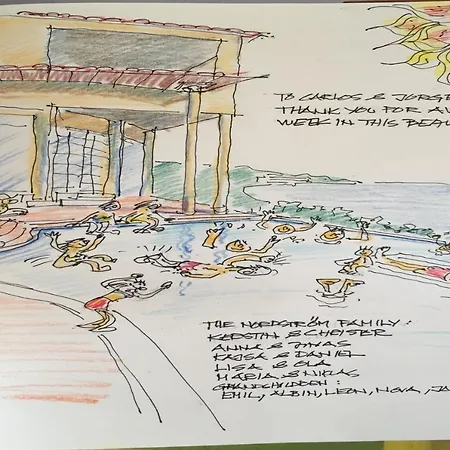 TO CARLOS & JORGE
THANK YOU FOR A
WEEK IN THIS BEAU
THE NORDSTRÖM FAMILY:
KERSTIN & CHRISTER
ANNA & JONAS
KAJSA & DANIEL
LISA & OLA
MARIA & NIKLAS
GRANDCHILDREN:
EMIL, ALBIN, LEON, NOVA, JA